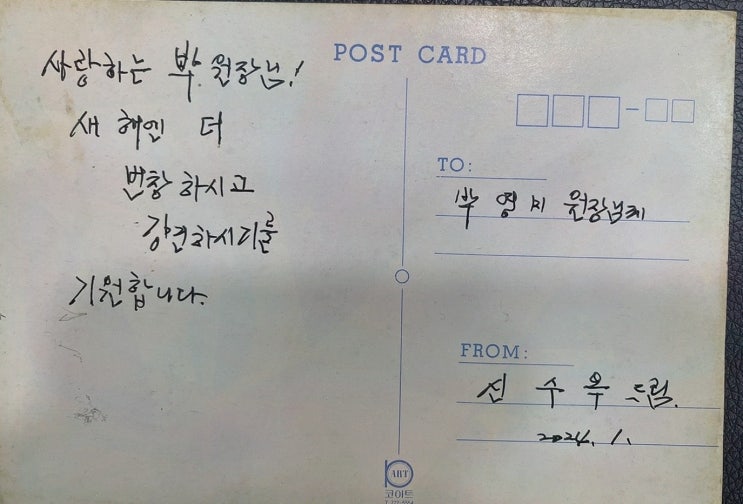 사랑하는 박 원장님!
새 해엔 더
번창하시고
강건하시기를
기원합니다.
POST CARD
TO:
박 영 지 원장님께
FROM:
신 수 옥 드림.
2024. 1.
ART
코아트